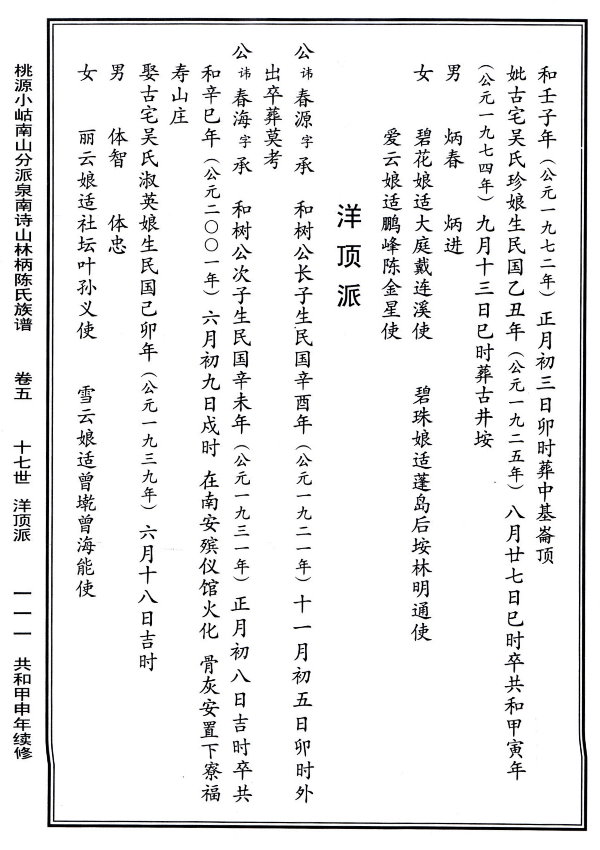 和壬子年（公元一九七二年）正月初三日卯时葬中基崙顶
妣古宅吴氏珍娘生民国乙丑年（公元一九二五年）八月廿七日巳时卒共和甲寅年
（公元一九七四年）九月十三日巳时葬古井垵
男 炳春 炳进
女 碧花娘适大庭戴连溪使 碧珠娘适蓬岛后垵林明通使
爱云娘适鹏峰陈金星使
洋顶派
公讳春源字承 和树公长子生民国辛酉年（公元一九二一年）十一月初五日卯时外
出卒葬莫考
公讳春海字承 和树公次子生民国辛未年（公元一九三一年）正月初八日吉时卒共
和辛巳年（公元二〇〇一年）六月初九日戌时 在南安殡仪馆火化 骨灰安置下寮福
寿山庄
娶古宅吴氏淑英娘生民国己卯年（公元一九三九年）六月十八日吉时
男 体智 体忠
女 丽云娘适社坛叶孙义使 雪云娘适曾墘曾海能使
桃源小岵南山分派泉南诗山林柄陈氏族谱 卷五 十七世 洋顶派 一一一 共和甲申年续修